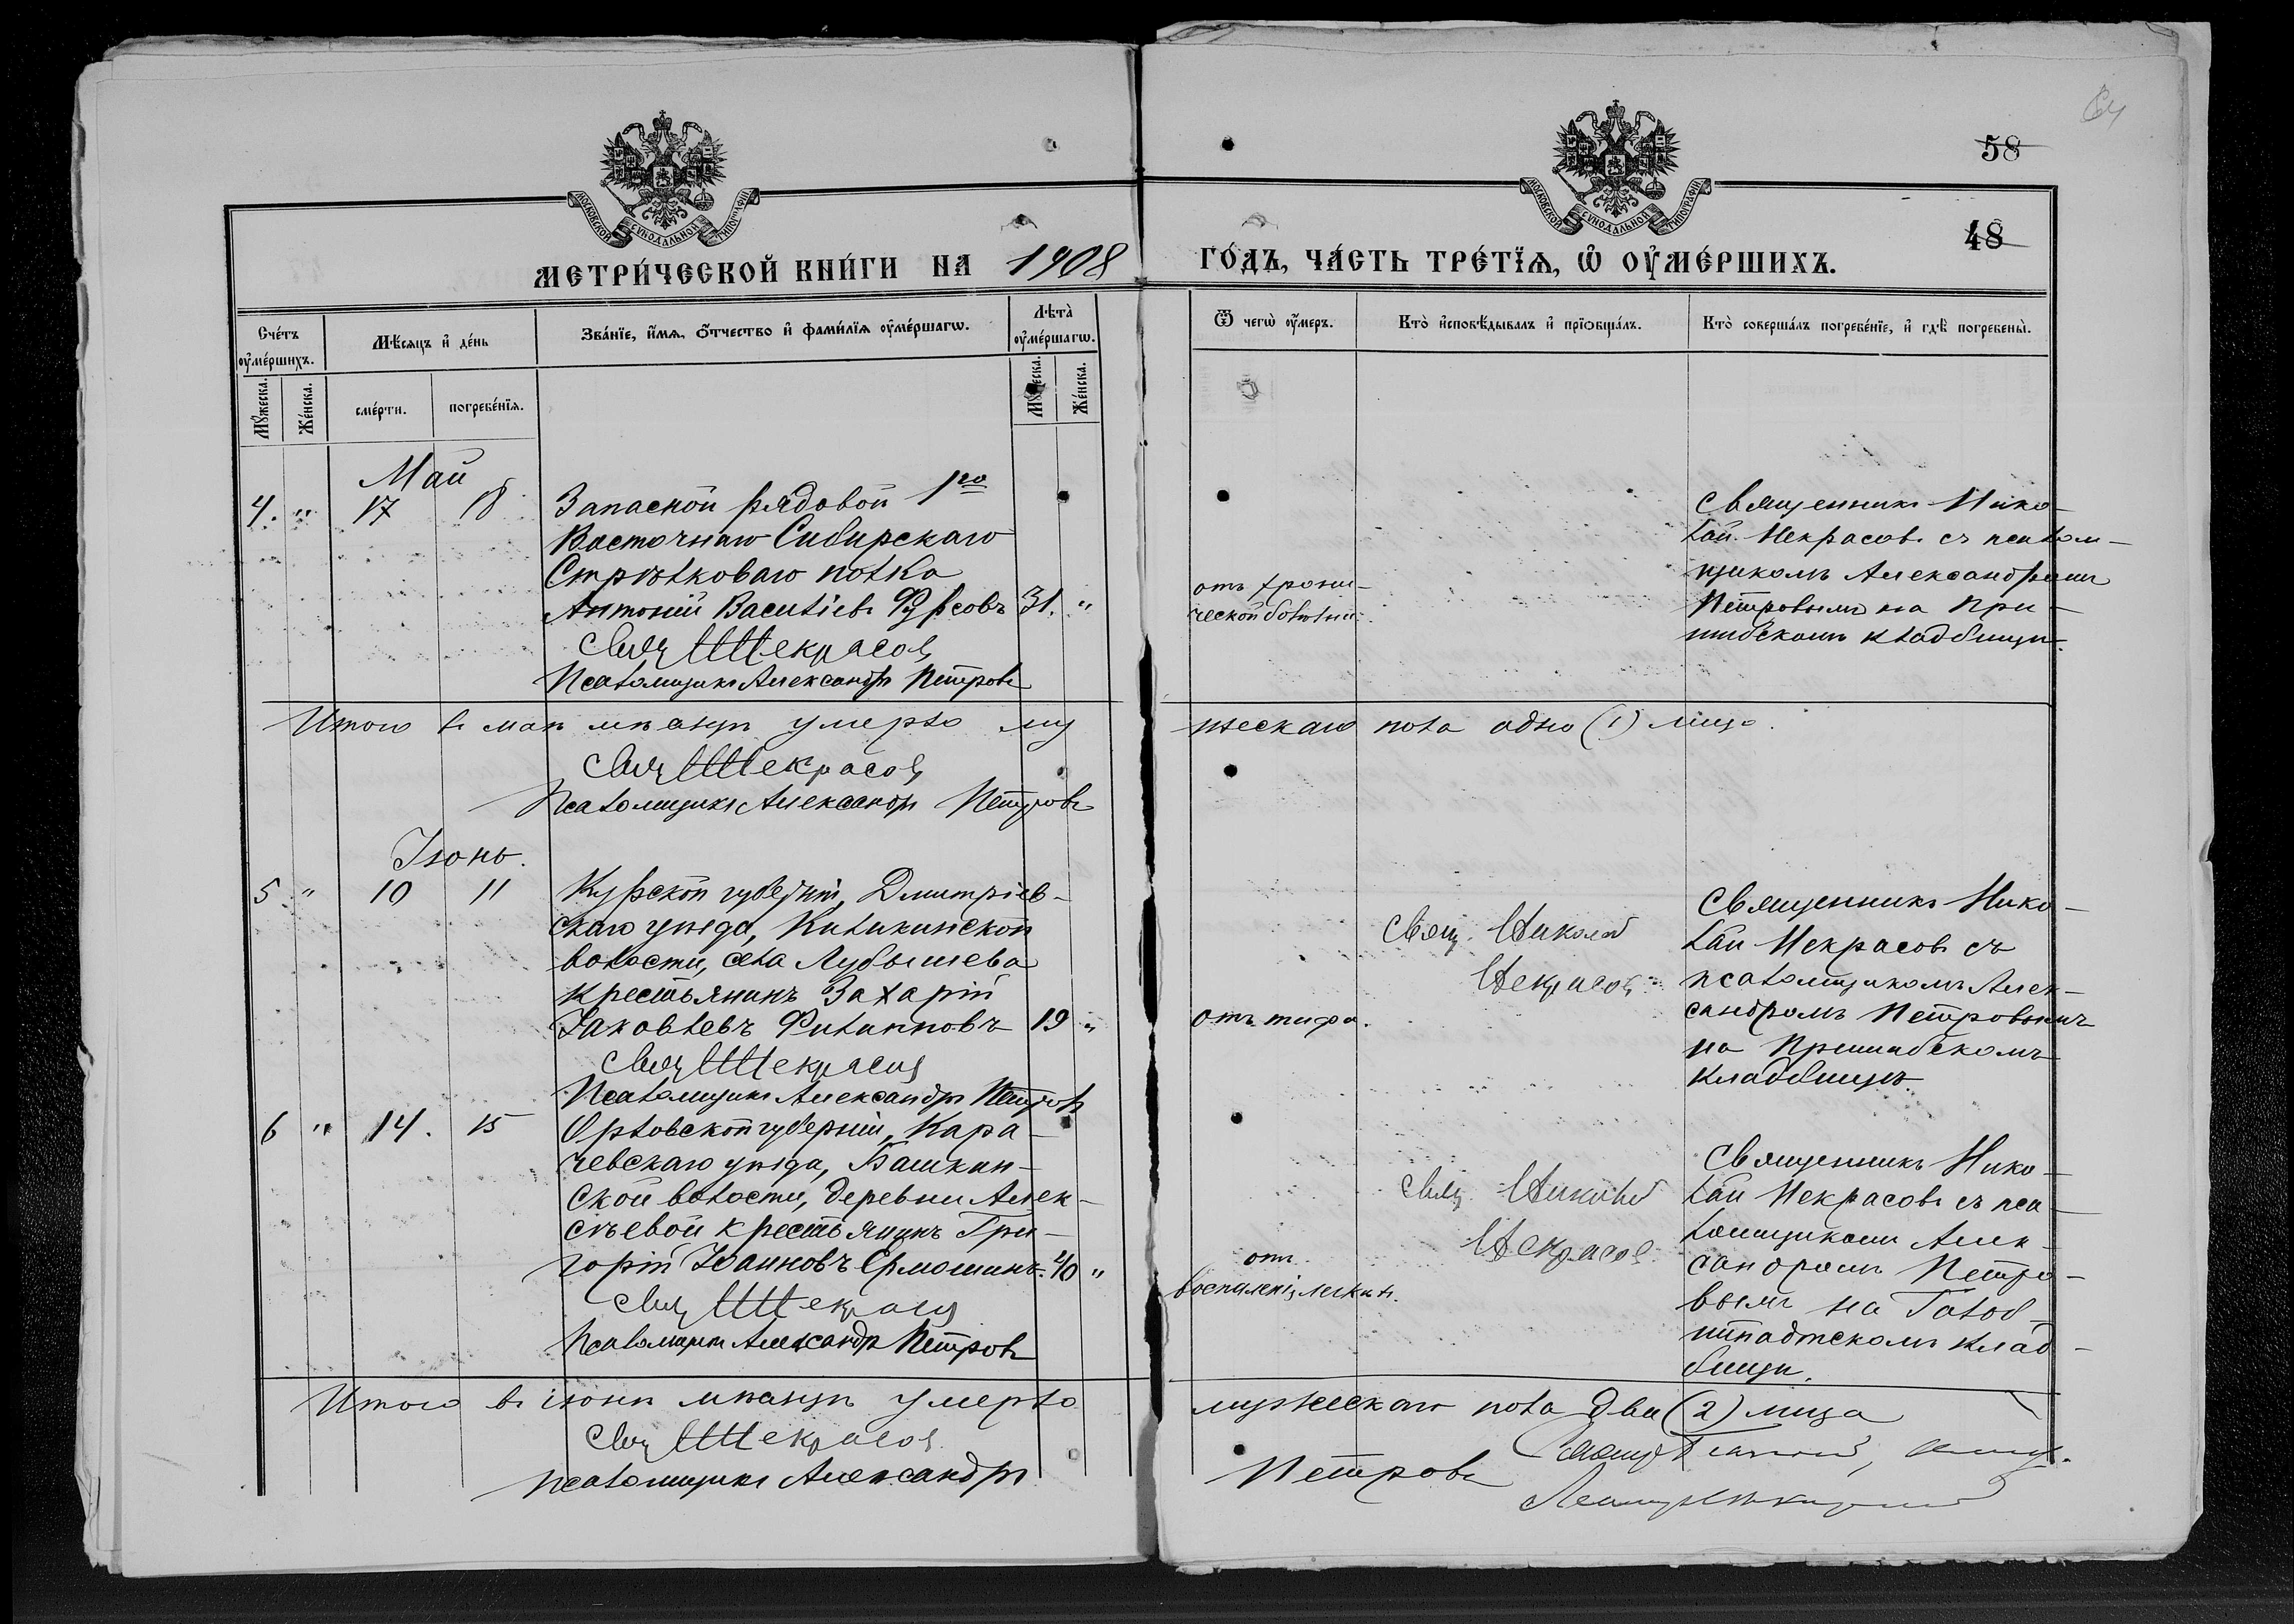 58
48
МЕТРИ́ЧЕСКОЙ КНИ́ГИ НА 1908
ГО́ДЪ, ЧА́СТЬ ТРЕ́ТЇѦ, Ѡ҆ ОУ҆МЕ́РШИХЪ.
МОСКОВСКОЙ СѴНОДАЛЬНОЙ ТИПОГРАФІИ
МОСКОВСКОЙ СѴНОДАЛЬНОЙ ТИПОГРАФІИ
Сче́тъ оу҆ме́ршихъ.
Мѣ́сяцъ и҆ де́нь
Зва́нїе, и҆́мѧ, ѻ҆́тчество и҆ фами́лїѧ оу҆ме́ршагѡ.
Лѣта̀ оу҆ме́ршагѡ.
Ѿ чегѡ̀ оу҆́меръ.
Кто̀ и҆сповѣ́дывалъ и҆ прїѡбща́лъ.
Кто̀ соверша́лъ погребе́нїе, и҆ гдѣ̀ погребены̀.
Мꙋ́жеска.
Же́нска.
сме́рти.
погребе́нїѧ.
Мꙋ́жеска.
Же́нска.
Май
4. " 17 18 Запасной рядовой 1го
Восточнаго Сибирскаго
Стрѣлковаго полка
Антоній Васильевъ Фурсовъ 31. "
Свящ Н Некрасовъ
Псаломщикъ Александръ Петровъ
отъ хрони-
ческой болѣзни.
Священникъ Нико-
лай Некрасовъ съ псалом-
щикомъ Александромъ
Петровымъ на При-
шибскомъ кладбищѣ.
Итого въ маѣ мѣсяцѣ умерло му
жескаго пола одно (1) лицо.
Свящ Н Некрасовъ
Псаломщикъ Александръ Петровъ
Іюнь.
5 " 10 11 Курской губерніи, Дмитріев-
скаго уѣзда, Киликинской
волости, села Лубошева
крестьянинъ Захарій
Іаковлевъ Филипповъ 19 "
Свящ Н Некрасовъ
Псаломщикъ Александръ Петровъ
отъ тифа.
Свящ. Николай
Некрасовъ
Священникъ Нико-
лай Некрасовъ съ
псаломщикомъ Алек-
сандромъ Петровымъ
на Пришибскомъ
кладбищѣ.
6 " 14. 15 Орловской губерніи, Кара-
чевскаго уѣзда, Башкин-
ской волости, деревни Алек-
сѣевой крестьянинъ Гри-
горій Іоанновъ Ермошинъ. 40 "
Свящ Н Некрасовъ
Псаломщикъ Александръ Петровъ
отъ
воспаленія легкихъ.
Свящ. Николай
Некрасовъ.
Священникъ Нико-
лай Некрасовъ съ пса-
ломщикомъ Алек-
сандромъ Петро-
вымъ на Гальб
штадтскомъ клад-
бищѣ.
Итого въ іюнѣ мѣсяцѣ умерло
мужескаго пола два (2) лица
Свящ Н Некрасовъ
Псаломщикъ Александръ
Петровъ